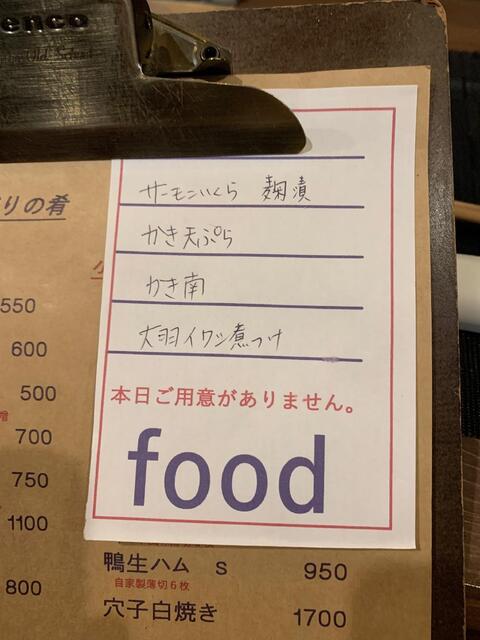 enco
サーモンいくら 麹漬
かき天ぷら
かき南
大羽イワシ煮つけ
本日ご用意がありません。
food
りの肴
550
600
500
700
750
1100
800
鴨生ハム S 950
自家製薄切6枚
穴子白焼き 1700